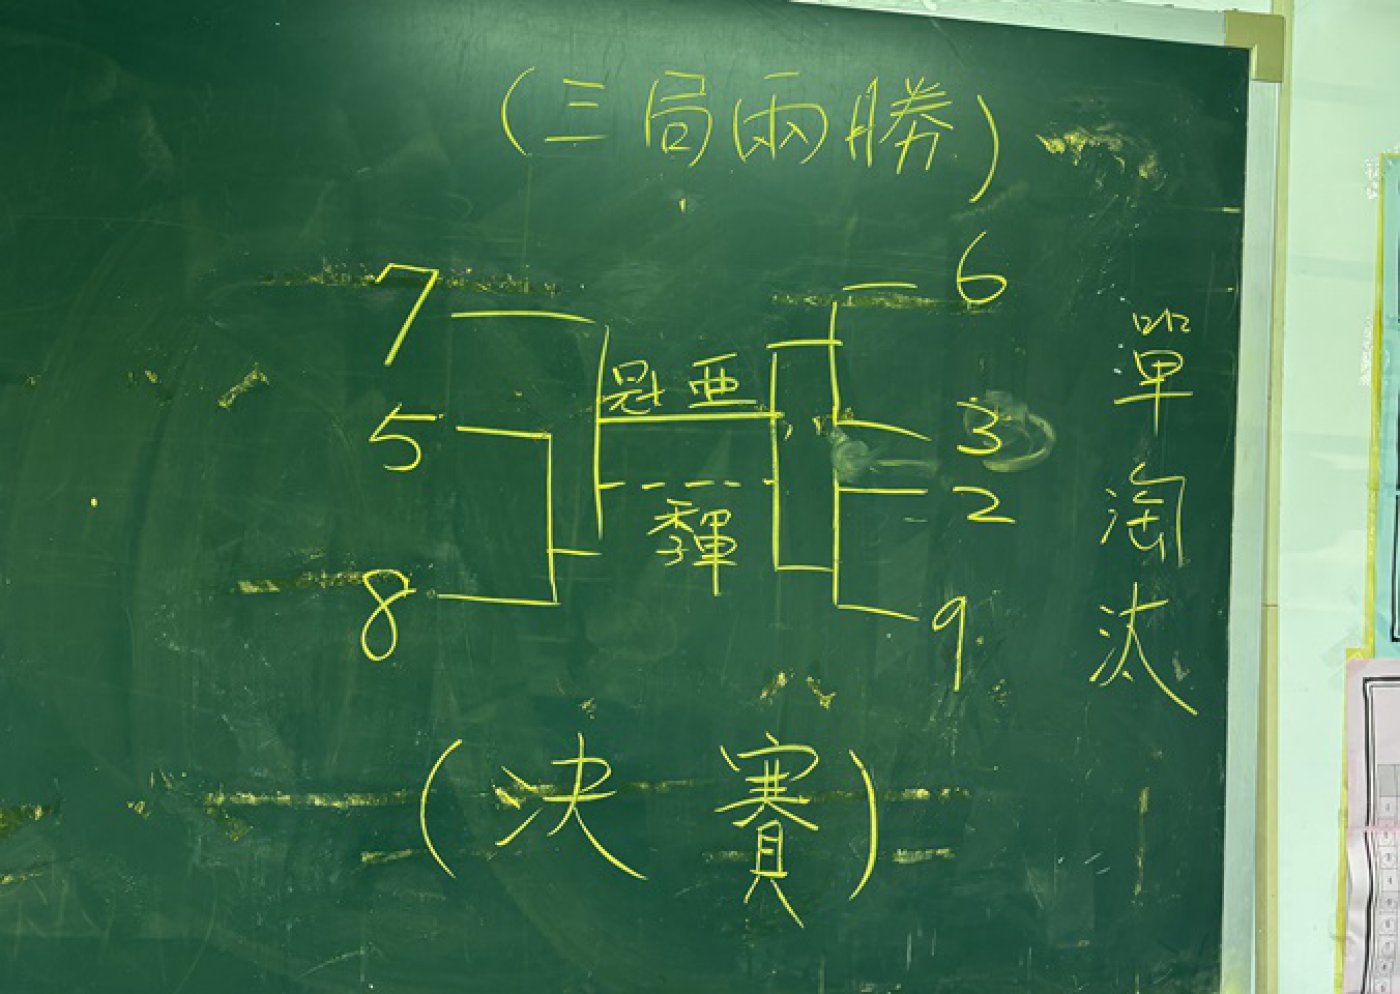 (三局兩勝)
7
5
8
冠亞
季軍
6
3
2
9
單淘汰
(決賽)